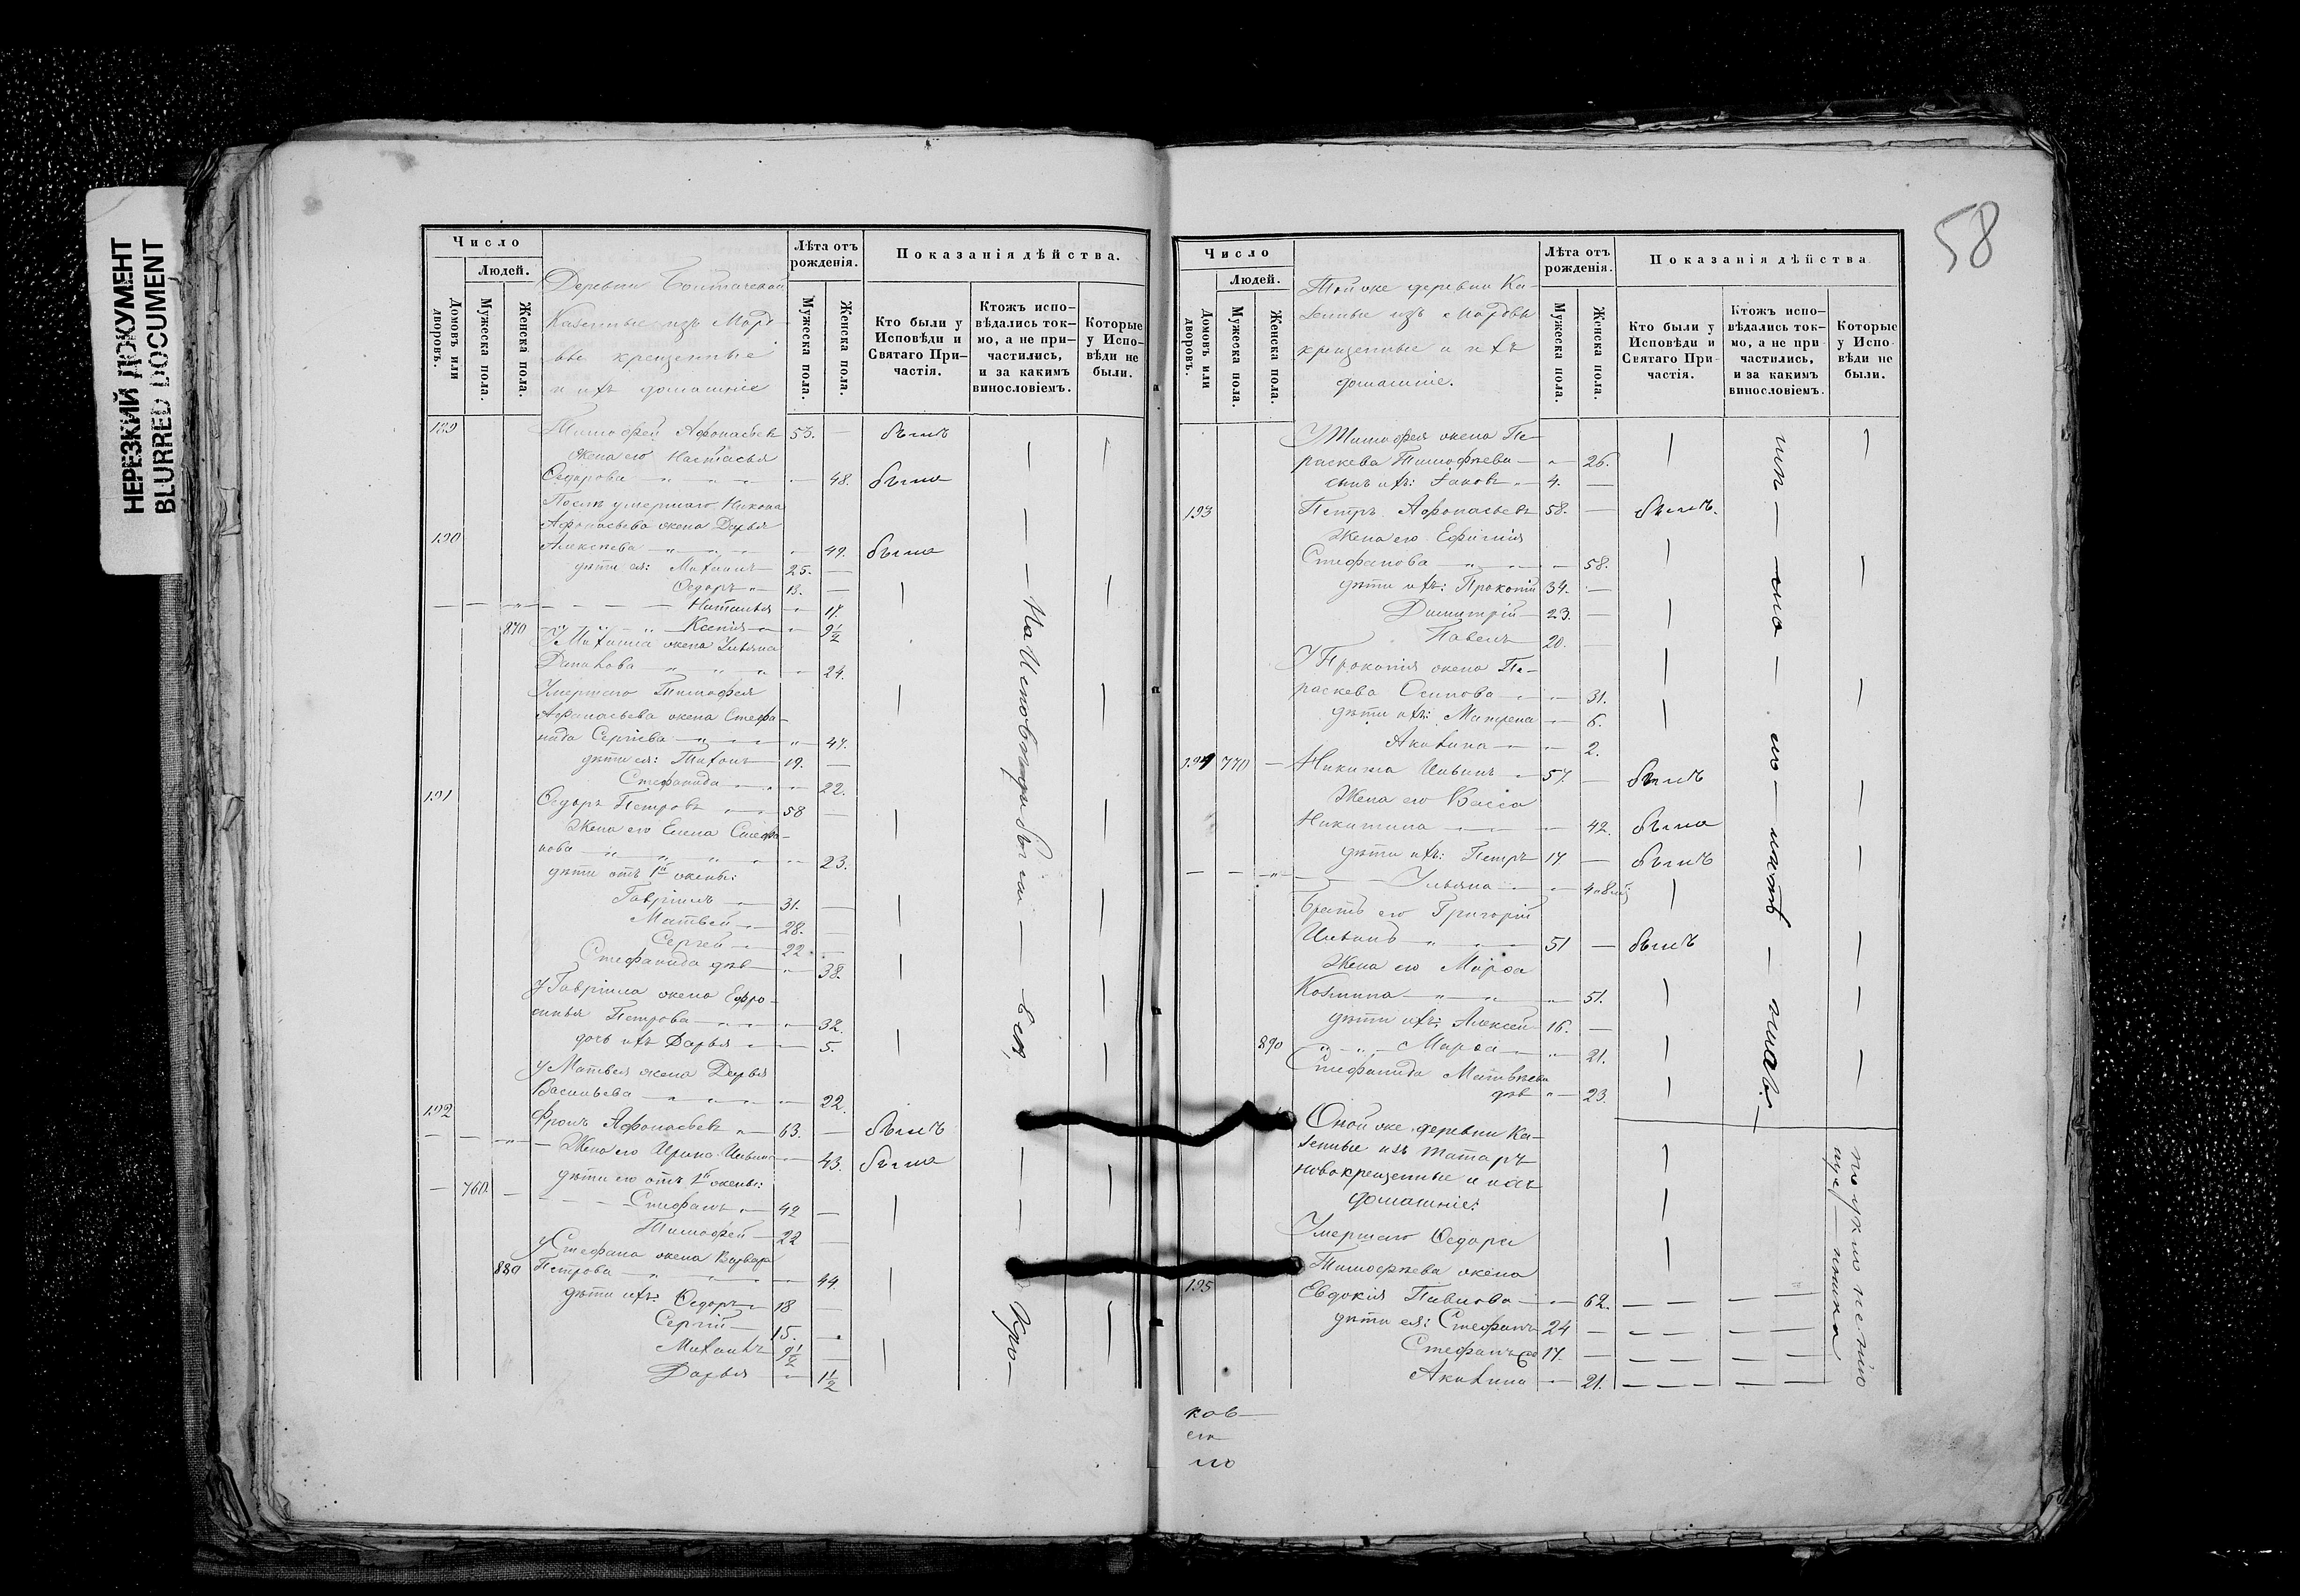 НЕРЕЗКИЙ ДОКУМЕНТ
BLURRED DOCUMENT
Число
Людей.
Домовъ или дворовъ.
Мужеска пола.
Женска пола.
Деревни
Казенные изъМорд-
вы крещенные
и ихъ домашніе
Лѣта отъ рожденія.
Мужеска пола.
Женска пола.
Показанія дѣйства.
Кто были у Исповѣди и Святаго При-частія.
Ктожъ испо-вѣдались ток-мо, а не при-частились, и за какимъ винословіемъ.
Которые у Испо-вѣди не были.
189 Тимофей Афонасьевъ 53. — былъ
Жена его Настасья
Ѳедорова — 48. была
Послѣ умершаго Никона
Афонасьева жена Дарья
190 Алексѣева — 49. была
дѣти ея: Михаилъ 25. —
Ѳедоръ 13. —
Наталья — 17.
870 Ксенія — 9½
У Михаила жена Ульяна
— 24.
Умершаго Тимофея
Афанасьева жена Стефа-
нида Сергіева — 47.
дѣти ея: Тихонъ 19. —
Стефанида — 22.
191 Ѳедоръ Петровъ 58 —
Жена его Елена Стефа-
нова — 23.
дѣти отъ 1й жены:
Гавріилъ 31. —
Матвей 28. —
Сергей 22. —
Стефанида дѣв — 38.
у Гавріила жена Ефро-
синья Петрова — 32.
дочь ихъ Дарья — 5.
у Матвея жена Дарья
Васильева — 22.
192 Фролъ Афонасьевъ 63. — былъ
Жена его Ирина — 43. была
дѣти его отъ 1й жены:
760 Стефанъ 42 —
Тимофей 22 —
у Стефана жена Варвара
880 Петрова — 44.
дѣти ихъ: Ѳедоръ 18 —
Сергій 15. —
Михаилъ 9½ —
Дарья — 1½
На Исповѣди были —
58
Число
Людей.
Домовъ или дворовъ.
Мужеска пола.
Женска пола.
Той же деревни Ка-
зенные изъ Мордвы
крещенные и ихъ
домашніе.
Лѣта отъ рожденія.
Мужеска пола.
Женска пола.
Показанія дѣйства
Кто были у Исповѣди и Святаго При-частія.
Ктожъ испо-вѣдались ток-мо, а не при-частились, и за какимъ винословіемъ.
Которые у Испо-вѣди не были.
У Тимофея жена Па-
раскева Тимофѣева — 26.
сынъ ихъ: Іаковъ 4. —
193 Петръ Афонасьевъ 58. — былъ.
Жена его Ефимія
Стефанова — 58.
дѣти ихъ: Прокопій 34. —
Димитрій 23. —
Павелъ 20. —
У Прокопія жена Па-
раскева Осипова — 31.
дѣти ихъ: Матрена — 6.
Акилина — 2.
194 770 Никита 57. — былъ
Жена его Васса
Никитина — 42. была
дѣти ихъ: Петръ 17 — былъ
Ульяна —
Братъ его Григорій
51 — былъ
Жена его Марѳа
Козмина — 51.
дѣти ихъ: Алексей 16. —
890 Марѳа — 21.
Стефанида Матвѣева
дѣв — 23.
Оной же деревни Ка-
зенные изъ татаръ
новокрещенные и ихъ
домашніе:
Умершаго Ѳедора
Тимофѣева жена
195 Евдокія Павлова — 62.
дѣти ея: Стефанъ 24 —
Стефанъ 17. —
Акилина — 21.
ков
его